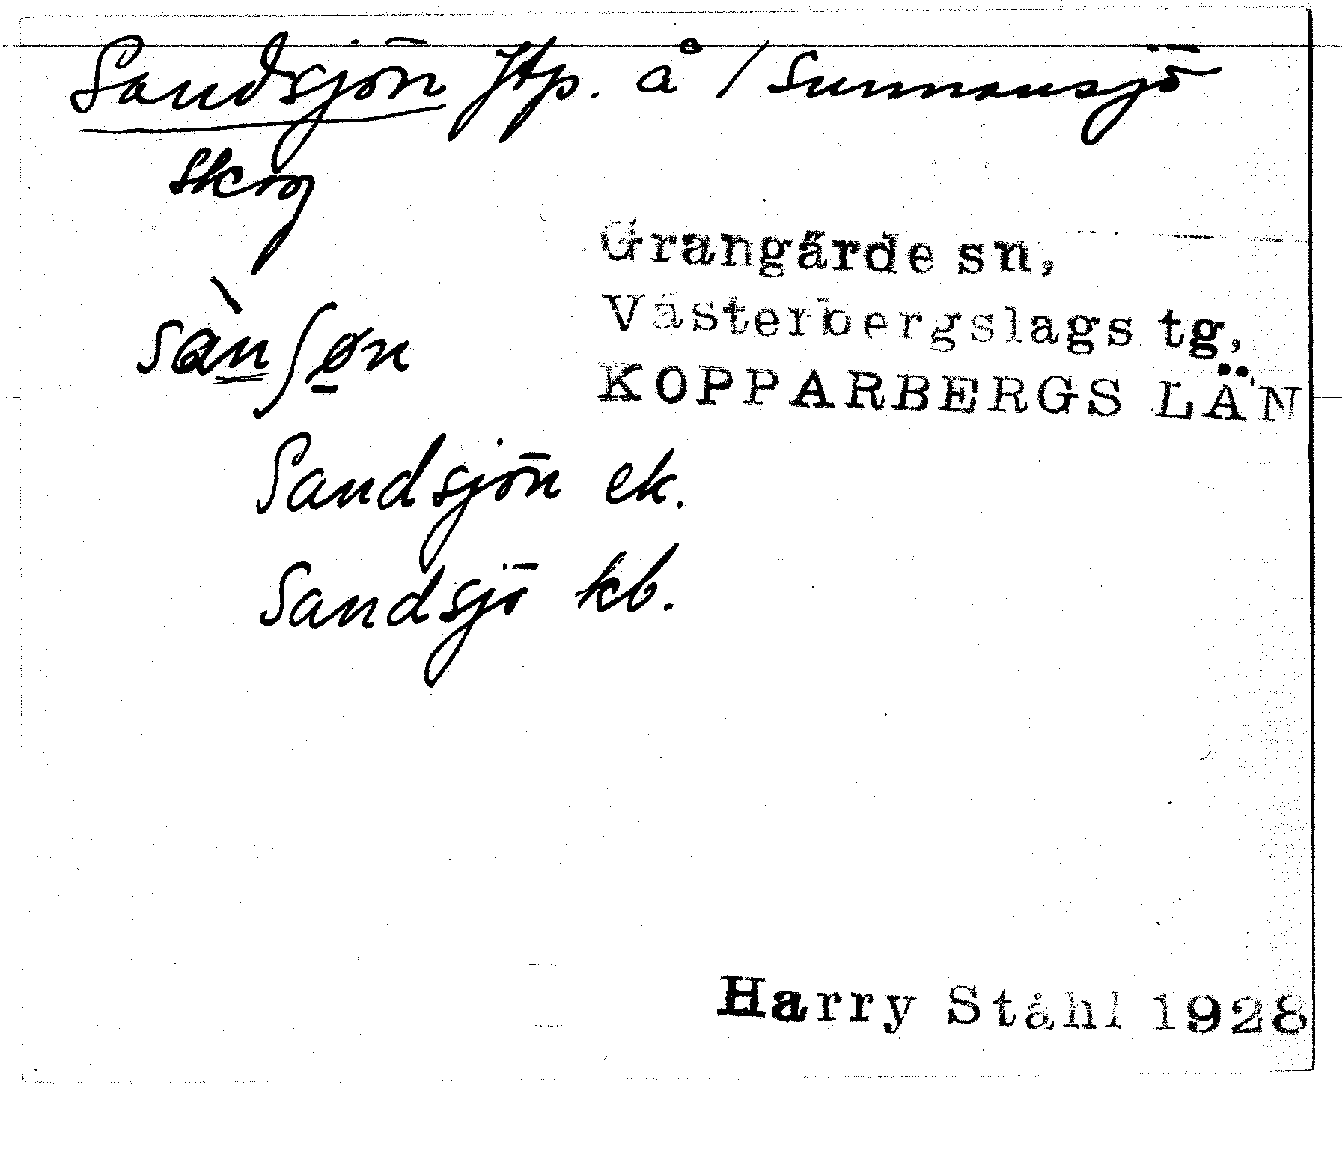 Sandsjön ftp. å / Sunnansjö
skog
sànʃøn
Grangärde sn,
Västerbergslags tg,
KOPPARBERGS LÄN
Sandsjön ek.
Sandsjö kb.
Harry Ståhl 1928